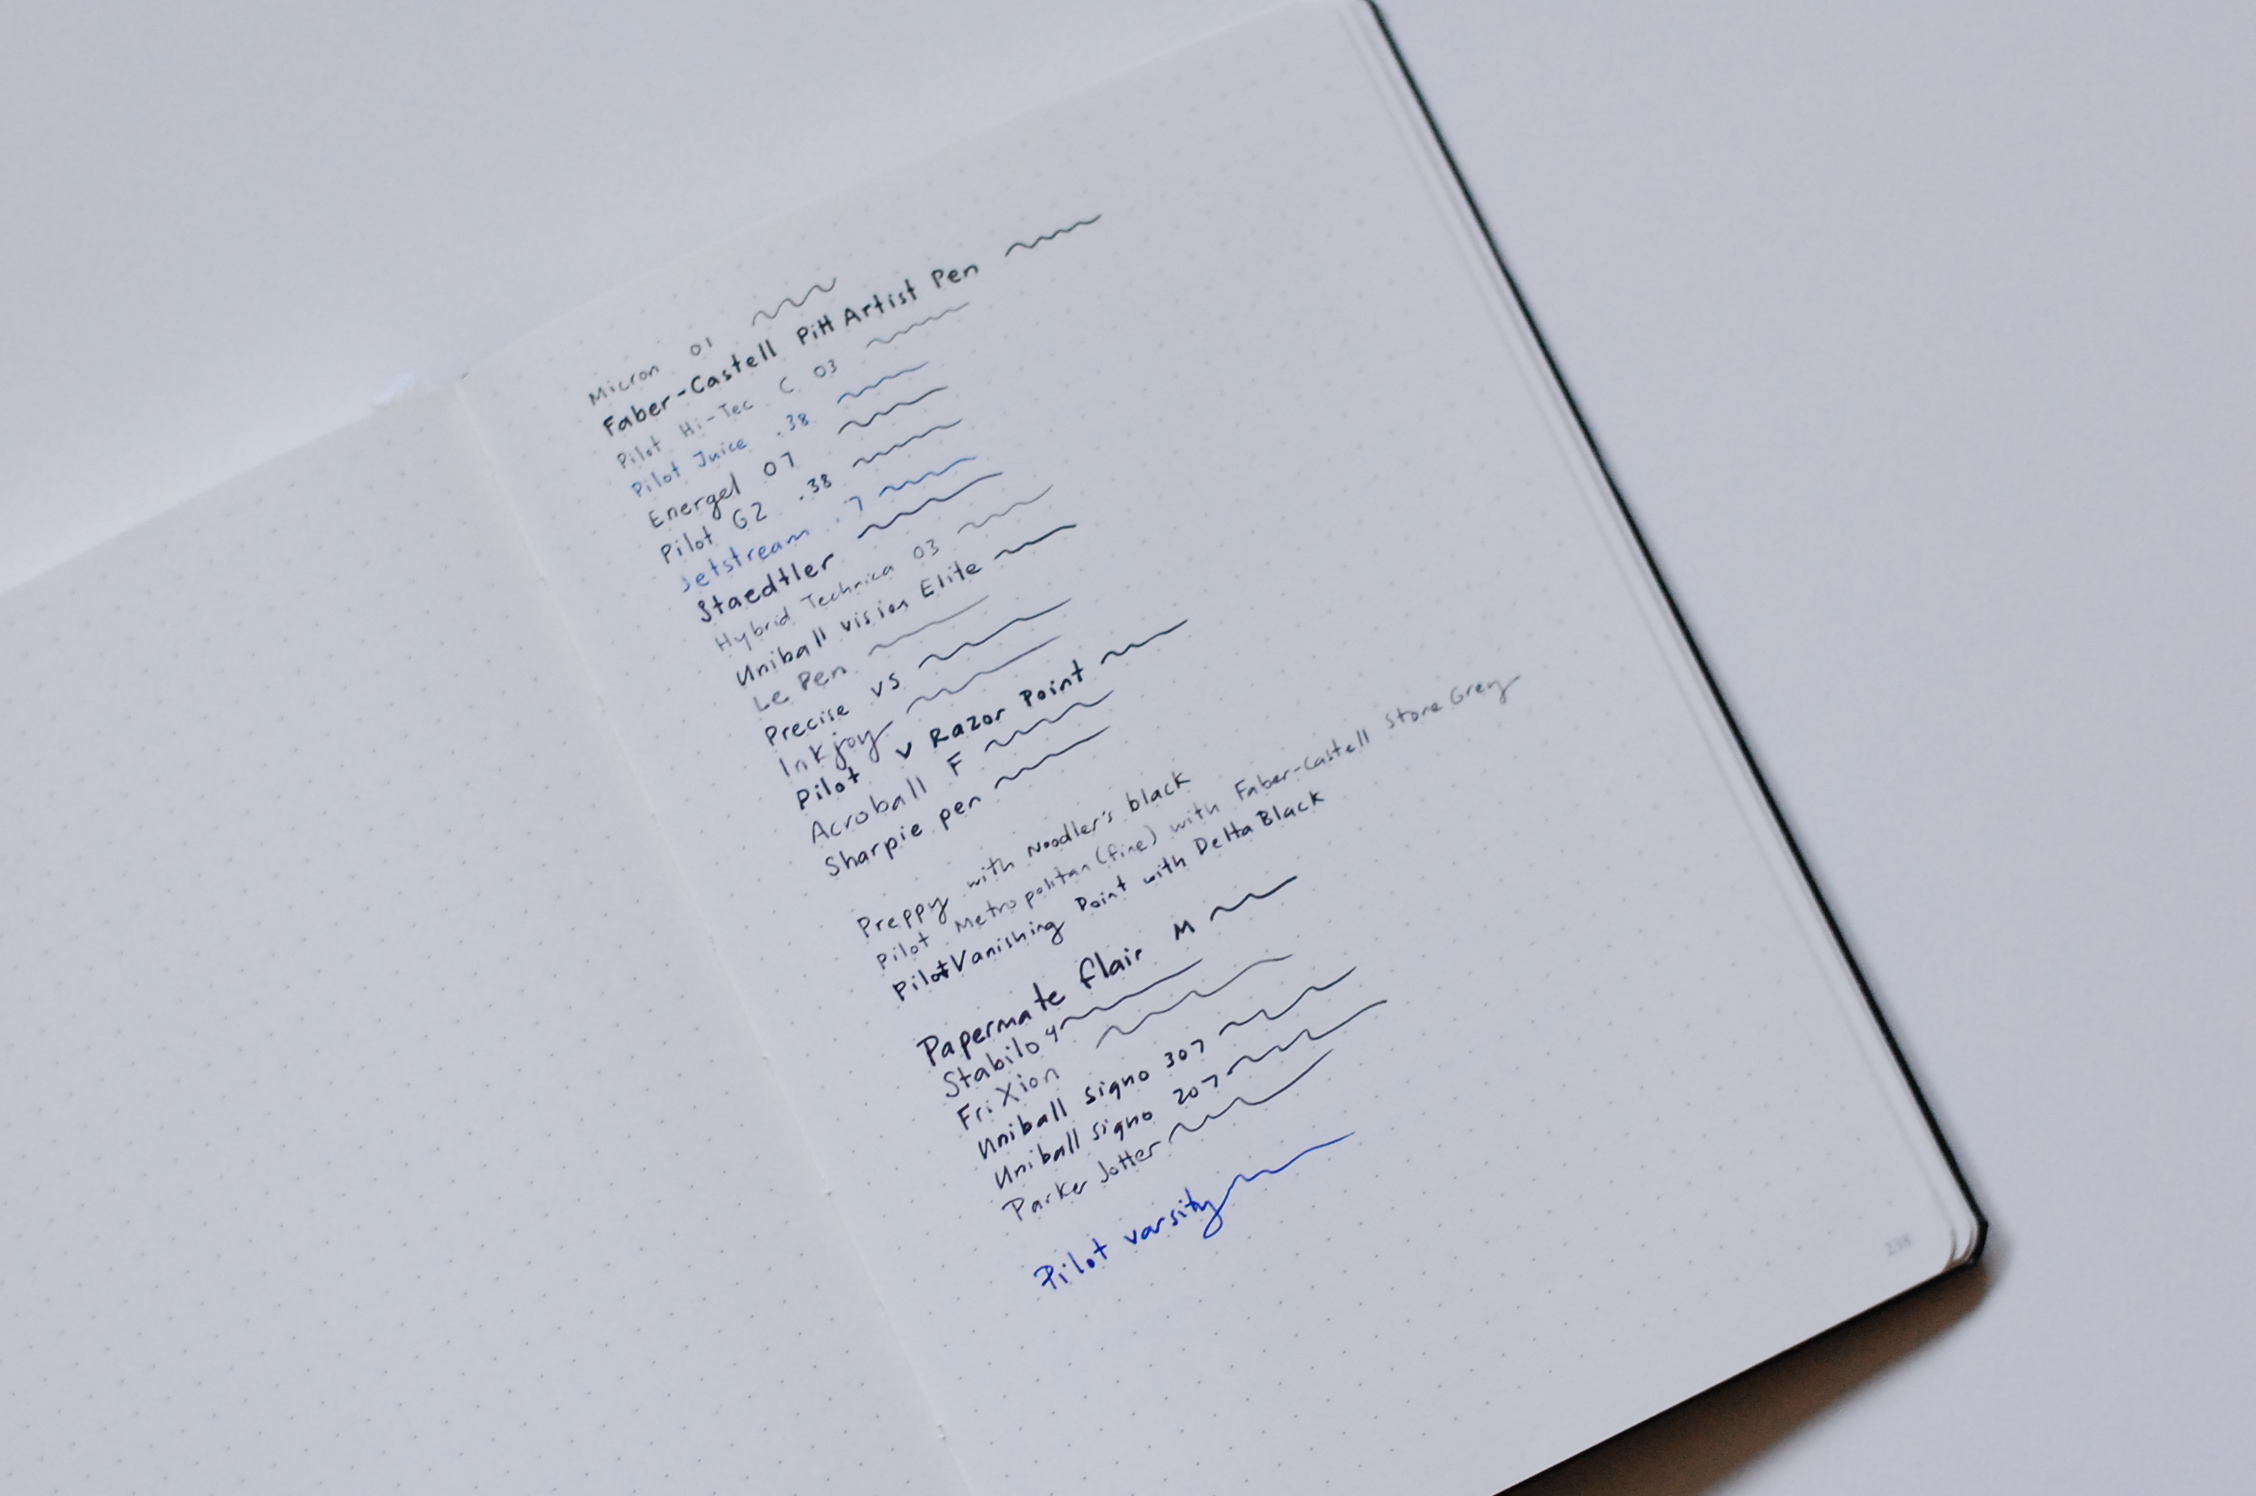 Micron 01
Faber-Castell Pitt Artist Pen
Pilot Hi-Tec C 03
Pilot Juice .38
Energel 07
Pilot G2 .38
Jetstream .7
Staedtler
Hybrid Technica 03
Uniball vision Elite
Le Pen
Precise V5
Inkjoy
Pilot V Razor Point
Acroball F
Sharpie pen
Preppy with Noodler's black
Pilot Metropolitan (fine) with Faber-Castell Stone Grey
Pilot Vanishing Point with Delta Black
Papermate flair M
Stabilo
FriXion
Uniball signo 307
Uniball signo 207
Parker Jotter
Pilot varsity